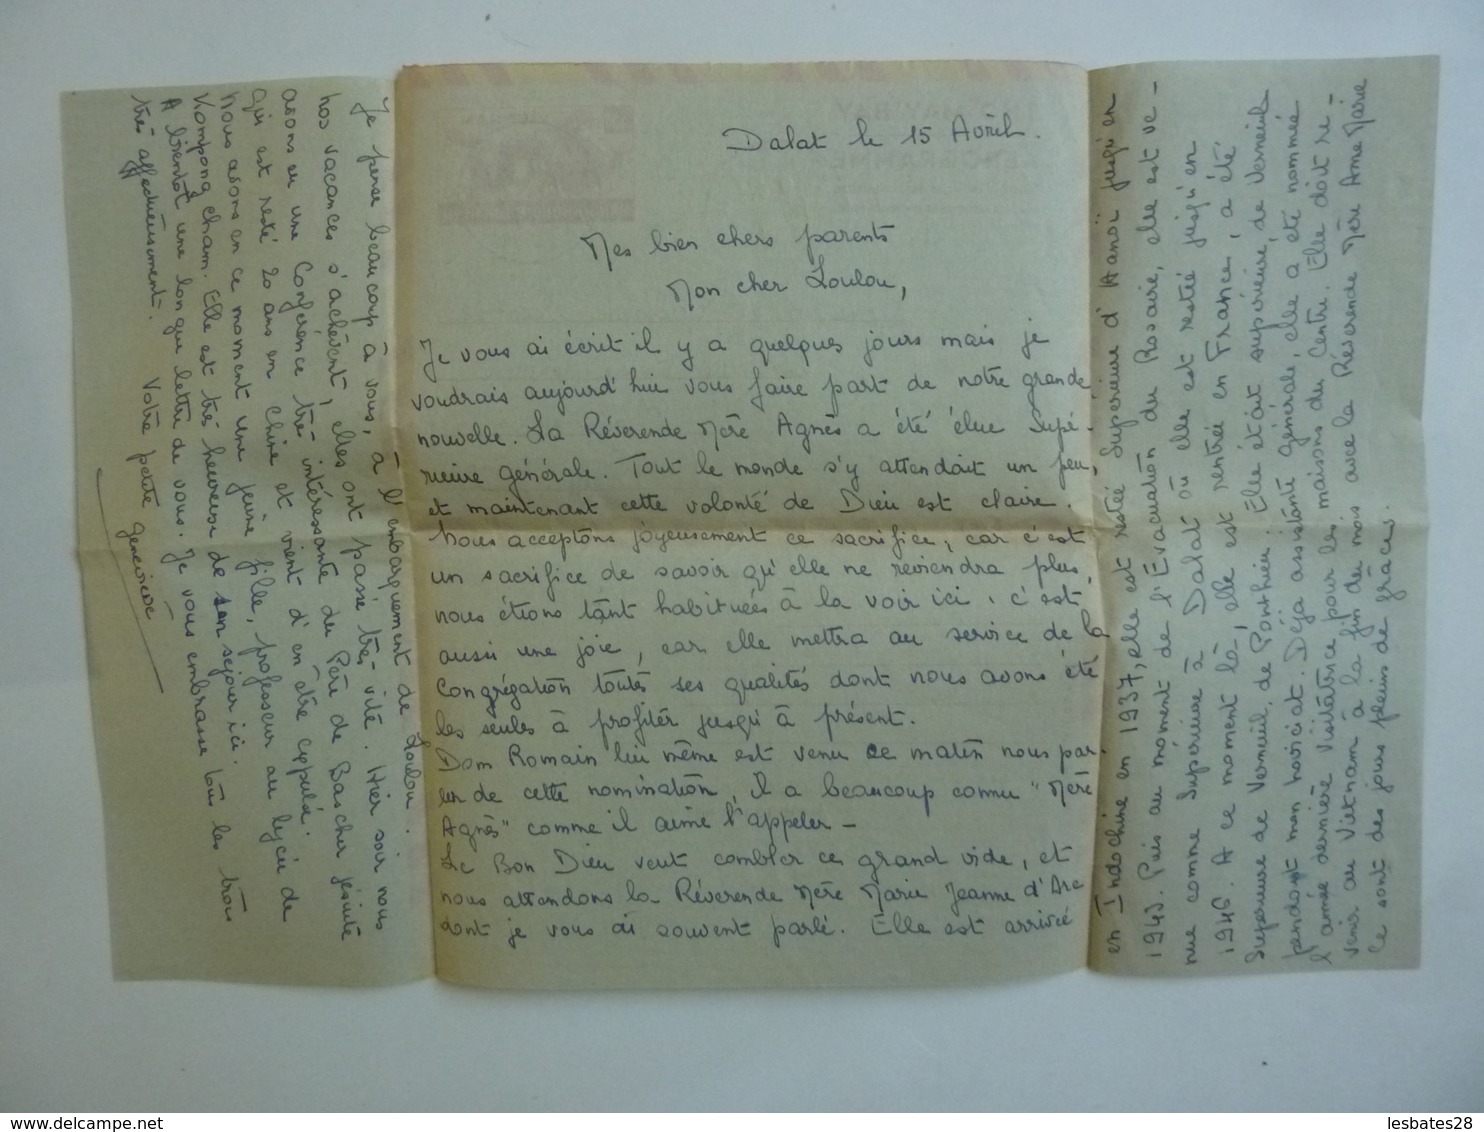 Dalat le 15 Avril.
Mes bien chers parents
Mon cher Loulou,
Je vous ai écrit il y a quelques jours mais je
voudrais aujourd'hui vous faire part de notre grande
nouvelle. La Réverende Mère Agnès a été élue Supé-
rieure générale. Tout le monde s'y attendait un peu,
et maintenant cette volonté de Dieu est claire.
Nous acceptons joyeusement ce sacrifice, car c'est
un sacrifice de savoir qu'elle ne reviendra plus,
nous étions tant habituées à la voir ici. C'est
aussi une joie, car elle mettra au service de la
Congrégation toutes ses qualités dont nous avons été
les seules à profiter jusqu'à présent.
Dom Romain lui même est venu ce matin nous par-
ler de cette nomination, Il a beaucoup connu "Mère
Agnès" comme il aime l'appeler -
Le Bon Dieu veut combler ce grand vide, et
nous attendons la Réverende Mère Marie Jeanne d'Arc
dont je vous ai souvent parlé. Elle est arrivée
en Indochine en 1937, elle est restée Supérieure d'Hanoï jusqu'en
1945. Puis au moment de l'Évacuation du Rosaire, elle est ve-
nue comme Supérieure à Dalat où elle est restée jusqu'en
1946. A ce moment là, elle est rentrée en France, a été
Supérieure de Verneuil, de Ponthieu. Elle était supérieure de Verneuil
pendant mon noviciat. Déjà assistante générale, elle a été nommée
l'année dernière visitatrice pour les maisons du Centre. Elle doit re-
venir au Vietnam à la fin du mois avec la Réverende Mère Anne Marie
Ce sont des jours pleins de grâces.
Je pense beaucoup à vous, à l'embarquement de Loulou.
Nos vacances s'achèvent, elles ont passé très vite. Hier soir nous
avons eu une Conférence très intéressante du Père de Bascher jésuite
qui est resté 20 ans en Chine et vient d'en être expulsé.
Nous avons en ce moment une jeune fille, professeur au lycée de
Kompong Cham. Elle est très heureuse de son sejour ici.
A bientôt une longue lettre de vous. Je vous embrasse tous les trois
très affectueusement. Votre petite Geneviève
lesbates28